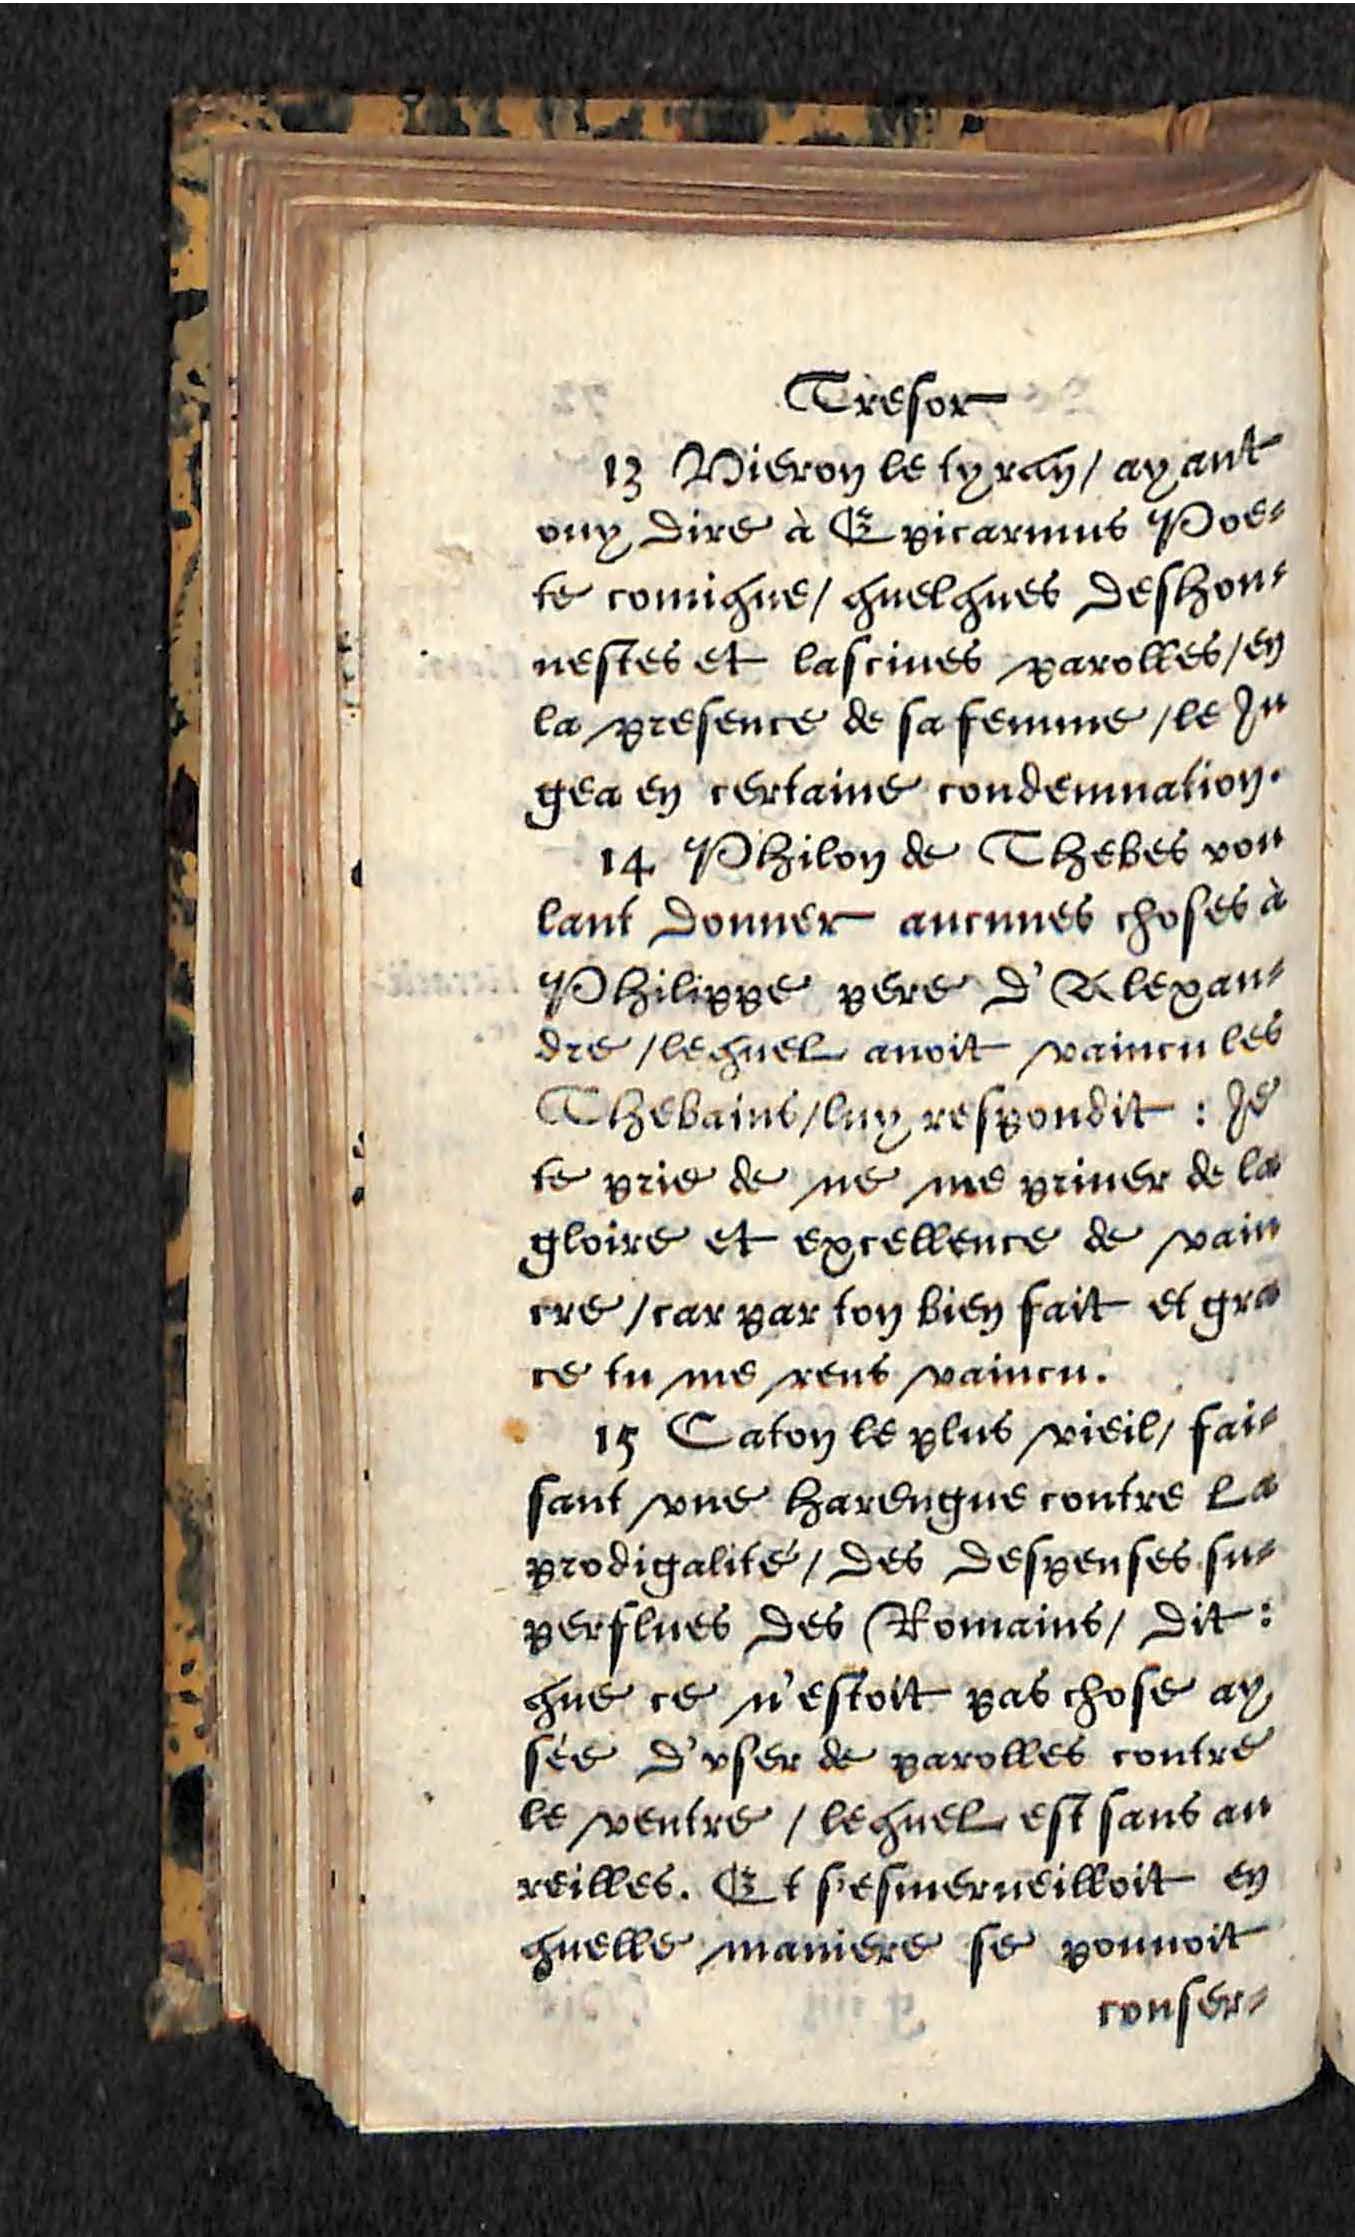 Tresor
13 Hieron le tyran/ ayant
ouy dire à Epicarmus Poe-
te comique/ quelques deshon-
nestes et lasciues parolles/ en
la presence de sa femme/ le Iu
gea en certaine condemnation.
14 Philon de Thebes vou
lant donner aucunes choses à
Philippe pere d'Alexan-
dre/ lequel auoit vaincu les
Thebains/ luy respondit : Ie
te prie de ne me priuer de la
gloire et excellence de vain
cre/ car par ton bien fait et gra
ce tu me rens vaincu.
15 Caton le plus vieil/ fai-
sant vne harengue contre la
prodigalité/ des despenses su-
perflues des Romains/ dit :
que ce n'estoit pas chose ay
sée d'vser de parolles contre
le ventre/ lequel est sans au
reilles. Et s'esmerueilloit en
quelle maniere se pouuoit
conser-